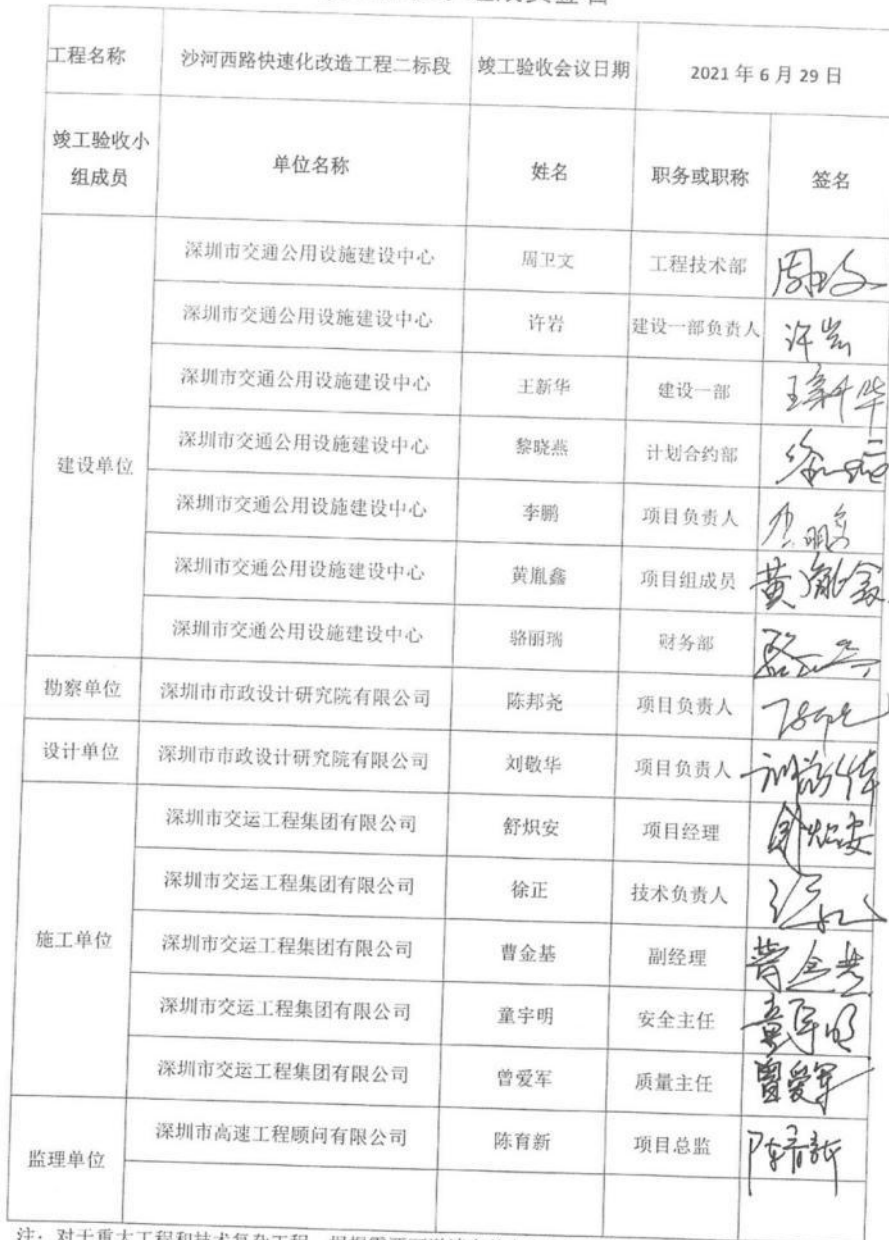 工程名称 沙河西路快速化改造工程二标段 竣工验收会议日期 2021 年 6 月 29 日
竣工验收小组成员 单位名称 姓名 职务或职称 签名
建设单位
深圳市交通公用设施建设中心 周卫文 工程技术部
深圳市交通公用设施建设中心 许岩 建设一部负责人 许岩
深圳市交通公用设施建设中心 王新华 建设一部 王新华
深圳市交通公用设施建设中心 黎晓燕 计划合约部
深圳市交通公用设施建设中心 李鹏 项目负责人 李鹏
深圳市交通公用设施建设中心 黄胤鑫 项目组成员 黄胤鑫
深圳市交通公用设施建设中心 骆丽瑞 财务部
勘察单位 深圳市市政设计研究院有限公司 陈邦尧 项目负责人
设计单位 深圳市市政设计研究院有限公司 刘敬华 项目负责人
施工单位
深圳市交运工程集团有限公司 舒炽安 项目经理 舒炽安
深圳市交运工程集团有限公司 徐正 技术负责人
深圳市交运工程集团有限公司 曹金基 副经理 曹金基
深圳市交运工程集团有限公司 童宇明 安全主任 童宇明
深圳市交运工程集团有限公司 曾爱军 质量主任 曾爱军
监理单位 深圳市高速工程顾问有限公司 陈育新 项目总监 陈育新
注：对于重大工程和技术复杂工程，根据需要可